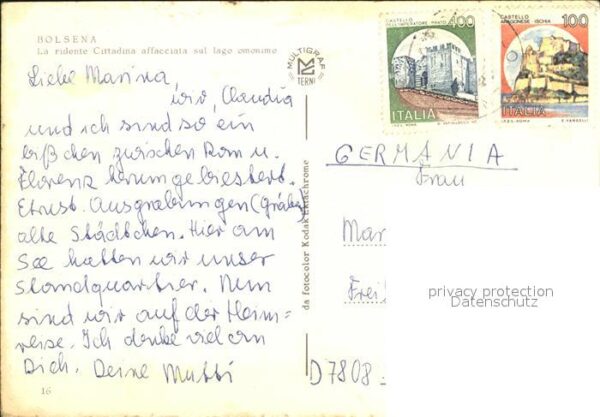 BOLSENA
La ridente Cittadina affacciata sul lago omonimo
Liebe Marina,
wir, Claudia
und ich sind so ein
bißchen zwischen Rom u.
Florenz herumgebiestert.
Etrusk. Ausgrabungen (Gräber
alte Städtchen. Hier am
See hatten wir unser
Standquartier. Nun
sind wir auf der Heim=
reise. Ich denke viel an
Dich. Deine Mutti
16
MULTIGRAF
TERNI
da fotocolor Kodak Ektachrome
CASTELLO
DELL'IMPERATORE - PRATO
400
ITALIA
I.P.Z.S. ROMA
CASTELLO
ARAGONESE - ISCHIA
100
ITALIA
I.P.Z.S. ROMA
E. VANGELLI
GERMANIA
Frau
Mar
Frei
D7808
privacy protection
Datenschutz